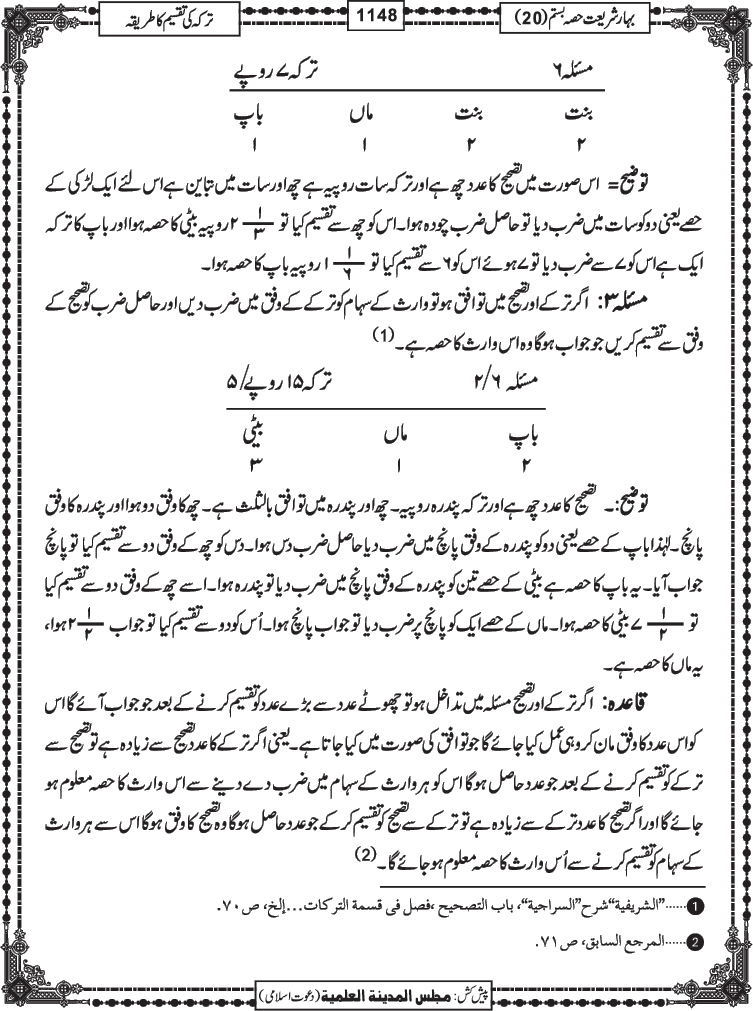 بہار شریعت حصہ بستم (20)
1148
ترکہ کی تقسیم کا طریقہ
مسئلہ ۶ ترکہ ۷ روپے
بنت بنت ماں باپ
۲ ۲ ۱ ۱
توضیح= اس صورت میں تصحیح کا عدد چھ ہے اور ترکہ سات روپیہ ہے چھ اور سات میں تباین ہے اس لئے ایک لڑکی کے
حصے یعنی دو کو سات میں ضرب دیا تو حاصل ضرب چودہ ہوا۔ اس کو چھ سے تقسیم کیا تو ۲ ۱/۳ روپیہ بیٹی کا حصہ ہوا اور باپ کا ترکہ
ایک ہے اس کو ۷ سے ضرب دیا تو ۷ ہوئے اس کو ۶ سے تقسیم کیا تو ۱ ۱/۶ روپیہ باپ کا حصہ ہوا۔
مسئلہ ۳: اگر ترکے اور تصحیح میں توافق ہو تو وارث کے سہام کو ترکے کے وفق میں ضرب دیں اور حاصل ضرب کو تصحیح کے
وفق سے تقسیم کریں جو جواب ہوگا وہ اس وارث کا حصہ ہے۔ (1)
مسئلہ ۲/۶ ترکہ ۱۵ روپے/۵
باپ ماں بیٹی
۲ ۱ ۳
توضیح:۔ تصحیح کا عدد چھ ہے اور ترکہ پندرہ روپیہ۔ چھ اور پندرہ میں توافق بالثلث ہے۔ چھ کا وفق دو ہوا اور پندرہ کا وفق
پانچ۔ لہٰذا باپ کے حصے یعنی دو کو پندرہ کے وفق پانچ میں ضرب دیا حاصل ضرب دس ہوا۔ دس کو چھ کے وفق دو سے تقسیم کیا تو پانچ
جواب آیا۔ یہ باپ کا حصہ ہے بیٹی کے حصے تین کو پندرہ کے وفق پانچ میں ضرب دیا تو پندرہ ہوا۔ اسے چھ کے وفق دو سے تقسیم کیا
تو ۷ ۱/۲ بیٹی کا حصہ ہوا۔ ماں کے حصے ایک کو پانچ پر ضرب دیا تو جواب پانچ ہوا۔ اُس کو دو سے تقسیم کیا تو جواب ۲ ۱/۲ ہوا،
یہ ماں کا حصہ ہے۔
قاعدہ: اگر ترکے اور تصحیح مسئلہ میں تداخل ہو تو چھوٹے عدد سے بڑے عدد کو تقسیم کرنے کے بعد جو جواب آئے گا اس
کو اس عدد کا وفق مان کر وہی عمل کیا جائے گا جو توافق کی صورت میں کیا جاتا ہے۔ یعنی اگر ترکے کا عدد تصحیح سے زیادہ ہے تو تصحیح سے
ترکے کو تقسیم کرنے کے بعد جو عدد حاصل ہوگا اس کو ہر وارث کے سہام میں ضرب دے دینے سے اس وارث کا حصہ معلوم ہو
جائے گا اور اگر تصحیح کا عدد ترکے سے زیادہ ہے تو ترکے سے تصحیح کو تقسیم کر کے جو عدد حاصل ہوگا وہ تصحیح کا وفق ہوگا اس سے ہر وارث
کے سہام کو تقسیم کرنے سے اُس وارث کا حصہ معلوم ہو جائے گا۔ (2)
1......"الشریفیة"شرح"السراجیة"، باب التصحیح ،فصل فی قسمة الترکات...إلخ، ص۷۰.
2......المرجع السابق، ص۷۱.
پیش کش: مجلس المدینة العلمیة (دعوت اسلامی)